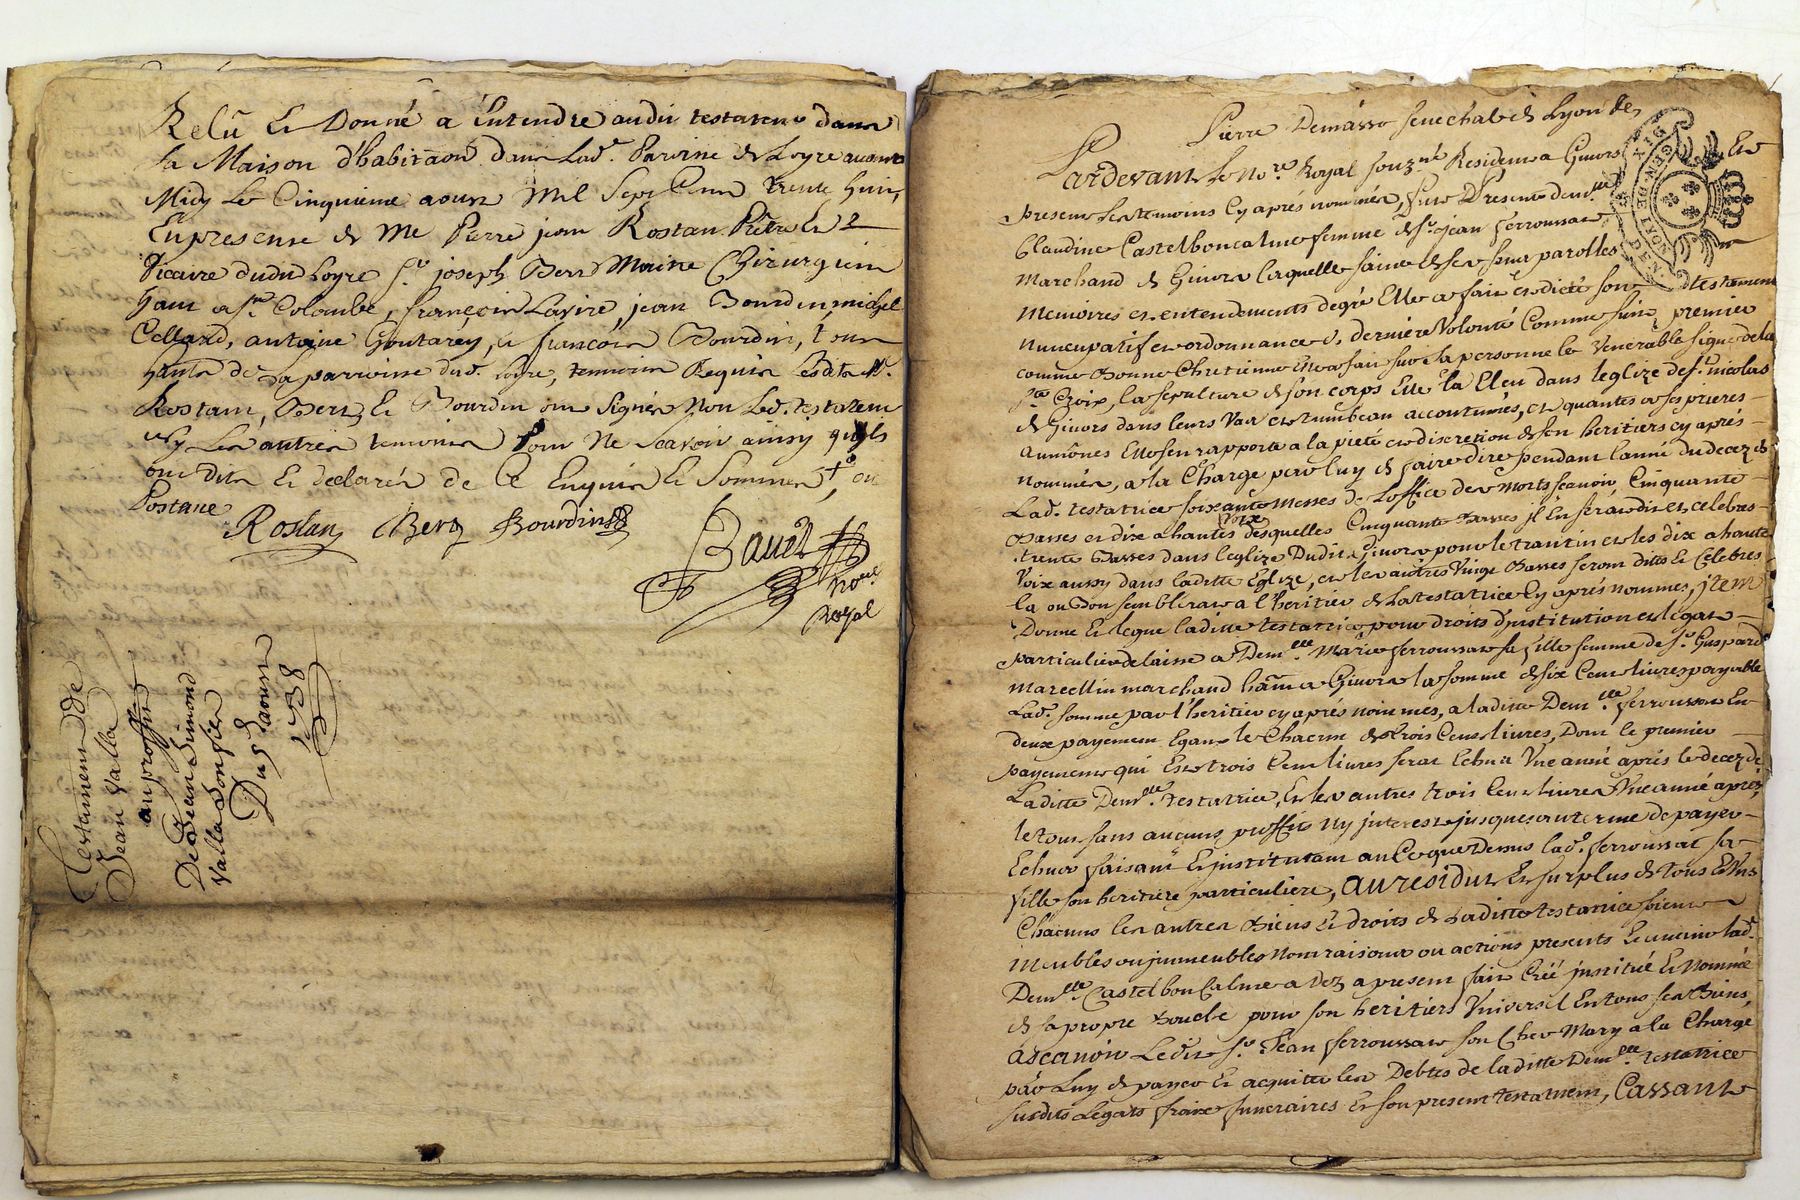 Relû Et Donné a Entendre audit testateur dans
sa Maison d'habitaõn dans lad.e Parroisse de Loyre avant
Midy Le Cinquieme aoust Mil Sept Cent trente huit,
En presence de Me Pierre jean Rostan Prêtre Et
Vicaire dudit Loyre Sr joseph Berz Moine Chirurgien
hant a Ste Colombe, françois Lavire, jean Bourdin, michel
Cellard, antoine Goutarey, et françois Bourdin, tous
hants de la parroisse dud. Loyre, temoins Requis Lesdits Srs
Rostan, Berz, Et Bourdin ont Signés Non Led. testateur
ny Les autres temoins Pour Ne Scavoir ainsy qu'ils
ont dits Et declarés de Ce Enquis Et Sommés
Rostan Berz Bourdin
Bauët
no.re
Royal
Testament de
Jean Valla
au proffit
De Jean Simond
Valla son fils
Du 5 aoust
1738
Pierre Demasso senechal de Lyon
Pardevant Le No.re Royal souz.né Residant a Givors Et
presents Les temoins Cy aprés nommés, fut Presente dem.lle
Claudine Castelboncalme femme de Sr jean ferroussat
Marchand de Givors Laquelle saine de ses sens parolles
Memoires et entendements de gré Elle a fait et dicté son testament
nuncupatif et ordonnance de derniere Volonté Comme suit, premier
comme Bonne Chrétienne Elle a fait sur sa personne le Venerable signe de la
Ste Croix, la sepulture de son corps Elle la Eleu dans l'eglize de St nicolas
de Givors dans leurs Vas et tumbeau accoutumés, et quantes a ses prieres
aumônes Elle s'en rapporte a la pieté et discretion de son heritiers cy aprés
nommés, a la Charge par luy de faire dire pendant l'anné du decez de
Lad. testatrice soixante Messes de L'office des Morts scavoir Cinquante
Basses et dix a hautes Voix desquelles Cinquante Basses jl En sera dit et celebrés
trente Basses dans l'eglize Dudit Givors pour le trantin et les dix a haute
Voix aussy dans laditte Eglize, et les autres Vingt Basses seront dittes Et Celebrés
la ou Bon semblerat a l'heritier de La testatrice Cy aprés nommes, jtem
Donne Et legue laditte testatrice pour droits d'jnstitution et legat
particulier delaisse a Dem.lle Marie ferroussat sa fille femme de Sr Gaspard
Marcellin marchand hant a Givors la somme de six Cent livres payable
Lad. somme par l'heritier cy aprés nommes, a laditte Dem.lle ferroussat En
deux payement Egaux le Chacun de trois Cent livres, Dont le premier
payement qui Est trois Cent livres serat Echu a Vne anné aprés le decez de
Laditte Dem.lle testatrice, Et les autres trois Cent livres Vne anné aprés,
le tout sans aucuns proffits ny jnterest jusques au terme de payer
Echus faisant Et jnstituant au Ce que Dessus lad. ferroussat sa
fille son heritiere particuliere, au residut Et surplus de tous Et Vns
Chacuns les autres Biens Et droits de Laditte testatrice soient
Meubles ou jmmeubles Noms raisons ou actions presents Et avenir lad.
Dem.lle Castelboncalme a Dez a present fait Créé jnstitué Et Nommé
de sa propre Bouche pour son heritiers Vniversel En tous ses Biens
ascavoir Ledit Sr Jean ferroussat son Cher Mary a la Charge
par Luy de payer Et acquitte les Debtes de laditte Dem.lle testatrice
susdits Legats fraix funeraires Et son present testament, Cassant
DIXIEME
GEN. DE LYON